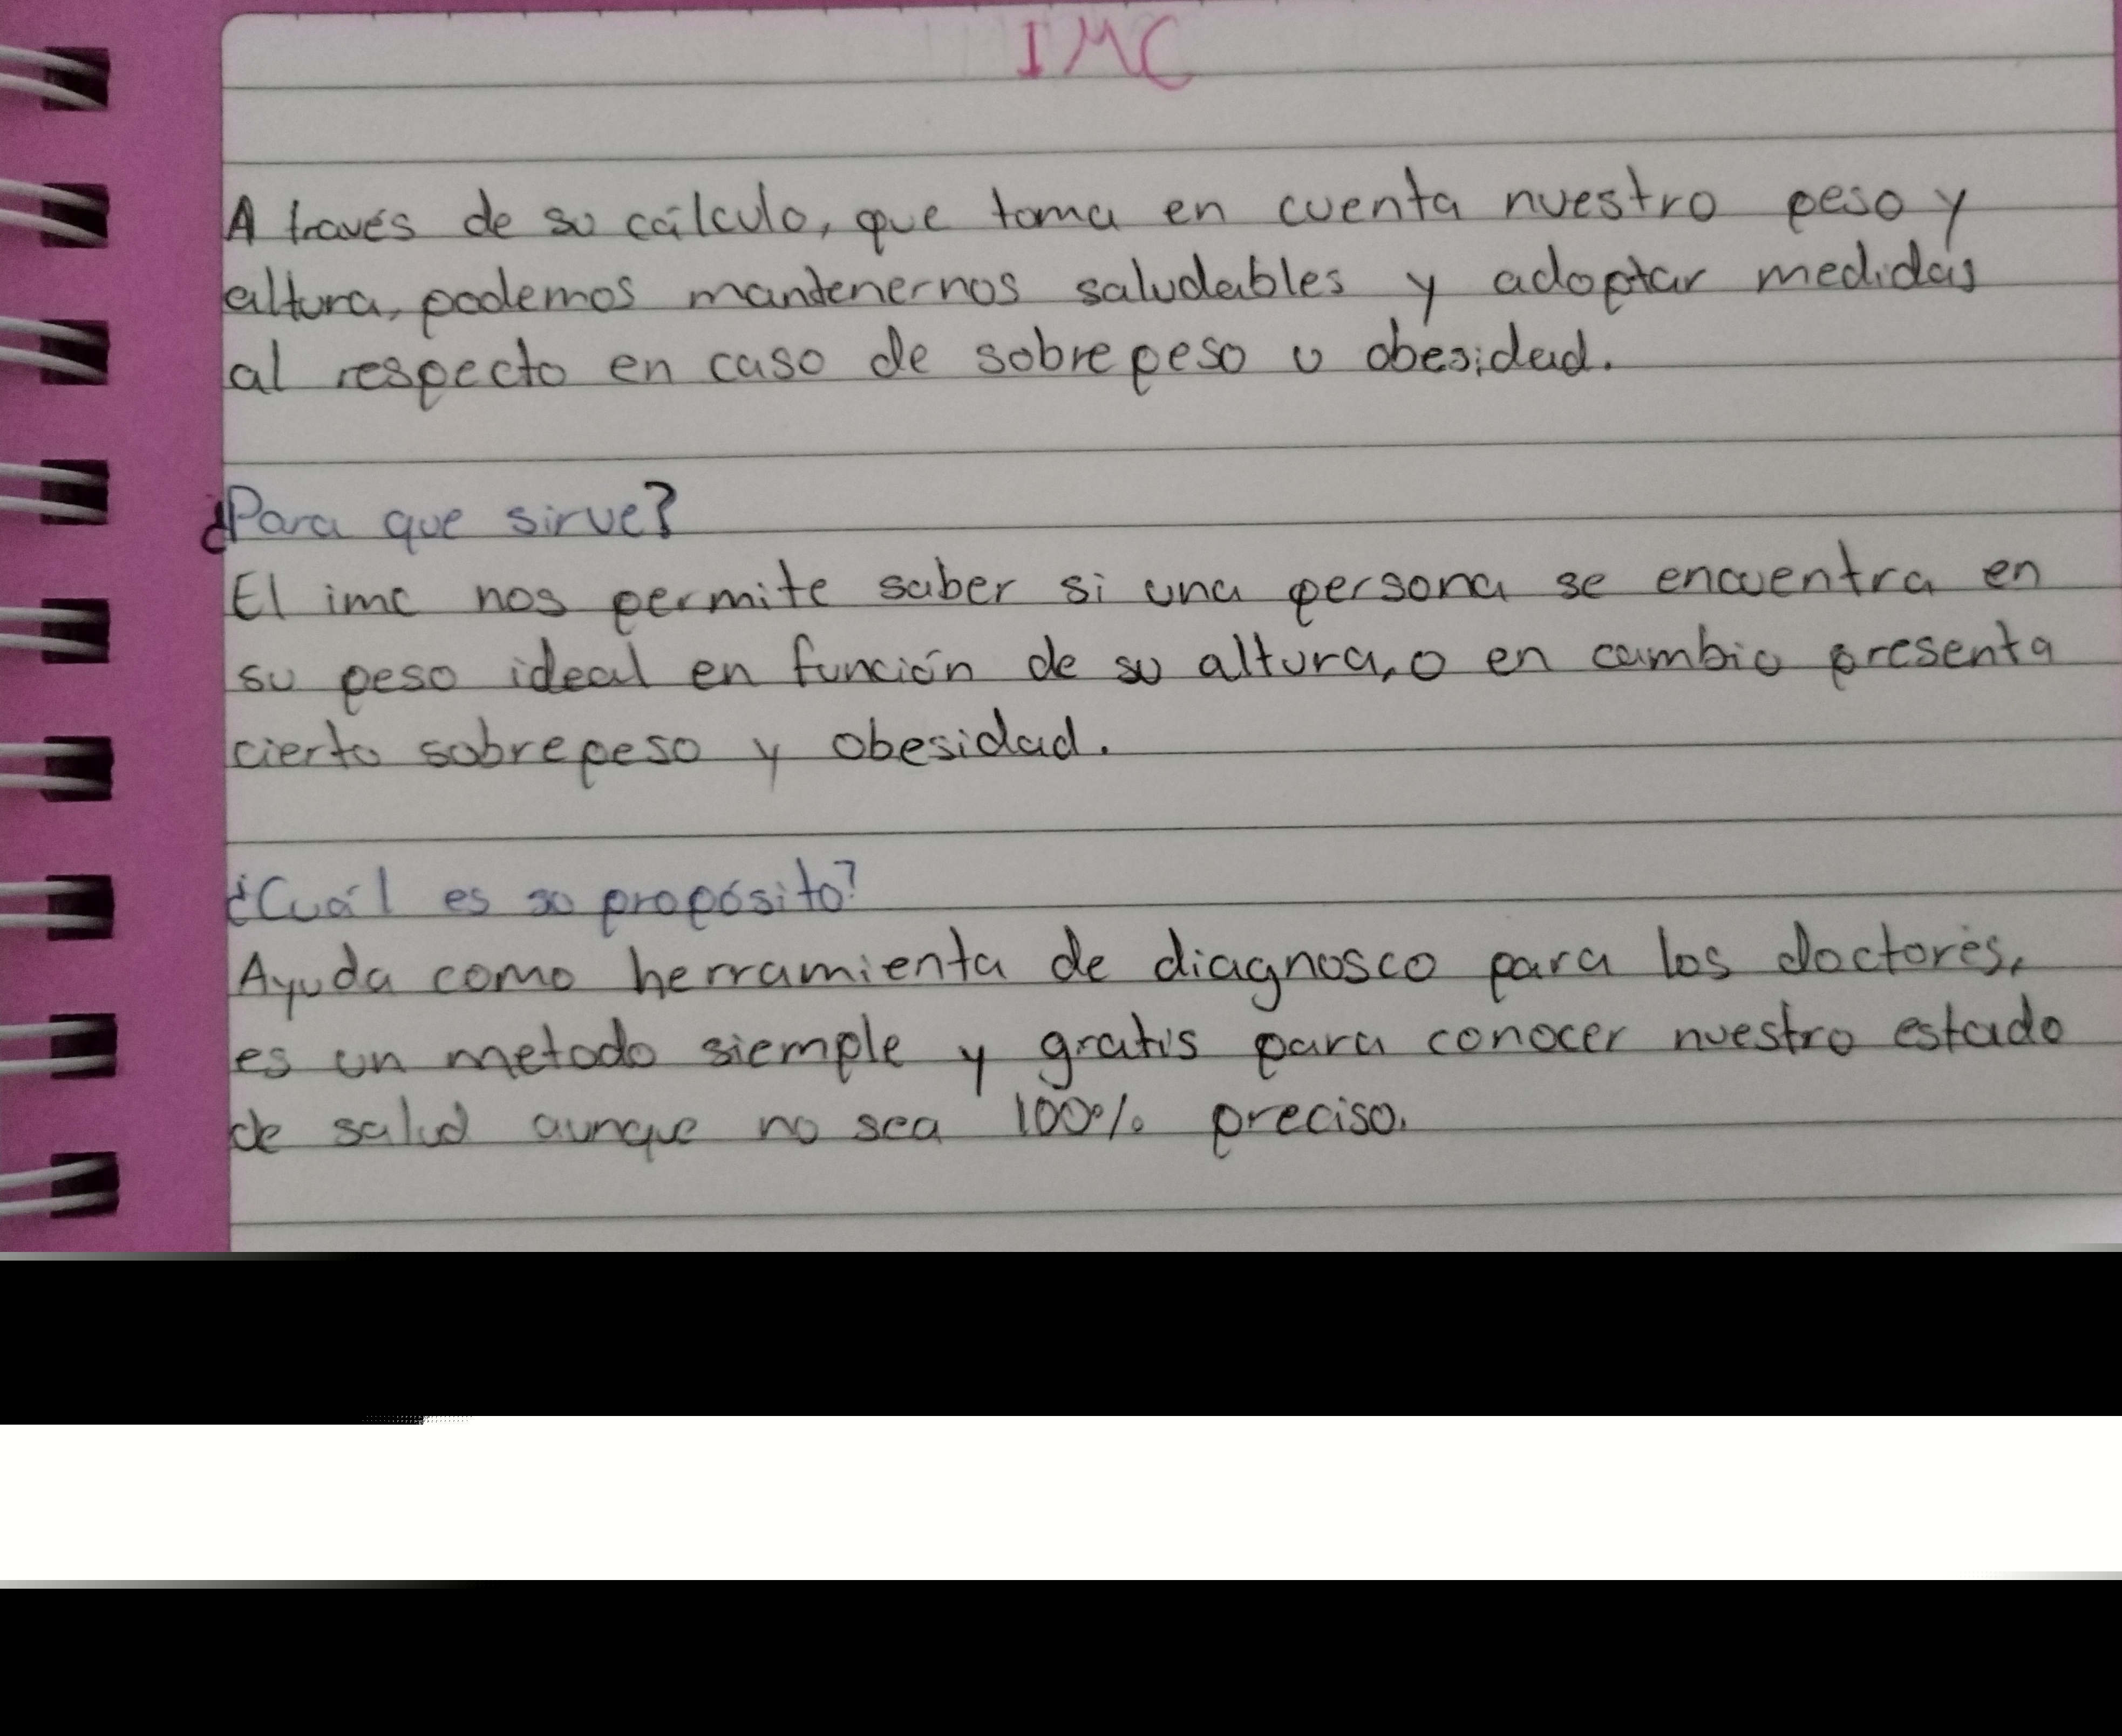 IMC
A través de su cálculo, que toma en cuenta nuestro peso y
altura, podemos mantenernos saludables y adoptar medidas
al respecto en caso de sobrepeso u obesidad.
¿Para que sirve?
El imc nos permite saber si una persona se encuentra en
su peso ideal en función de su altura, o en cambio presenta
cierto sobrepeso y obesidad.
¿Cuál es su propósito?
Ayuda como herramienta de diagnosco para los doctores,
es un metodo siemple y gratis para conocer nuestro estado
de salud aunque no sea 100% preciso.